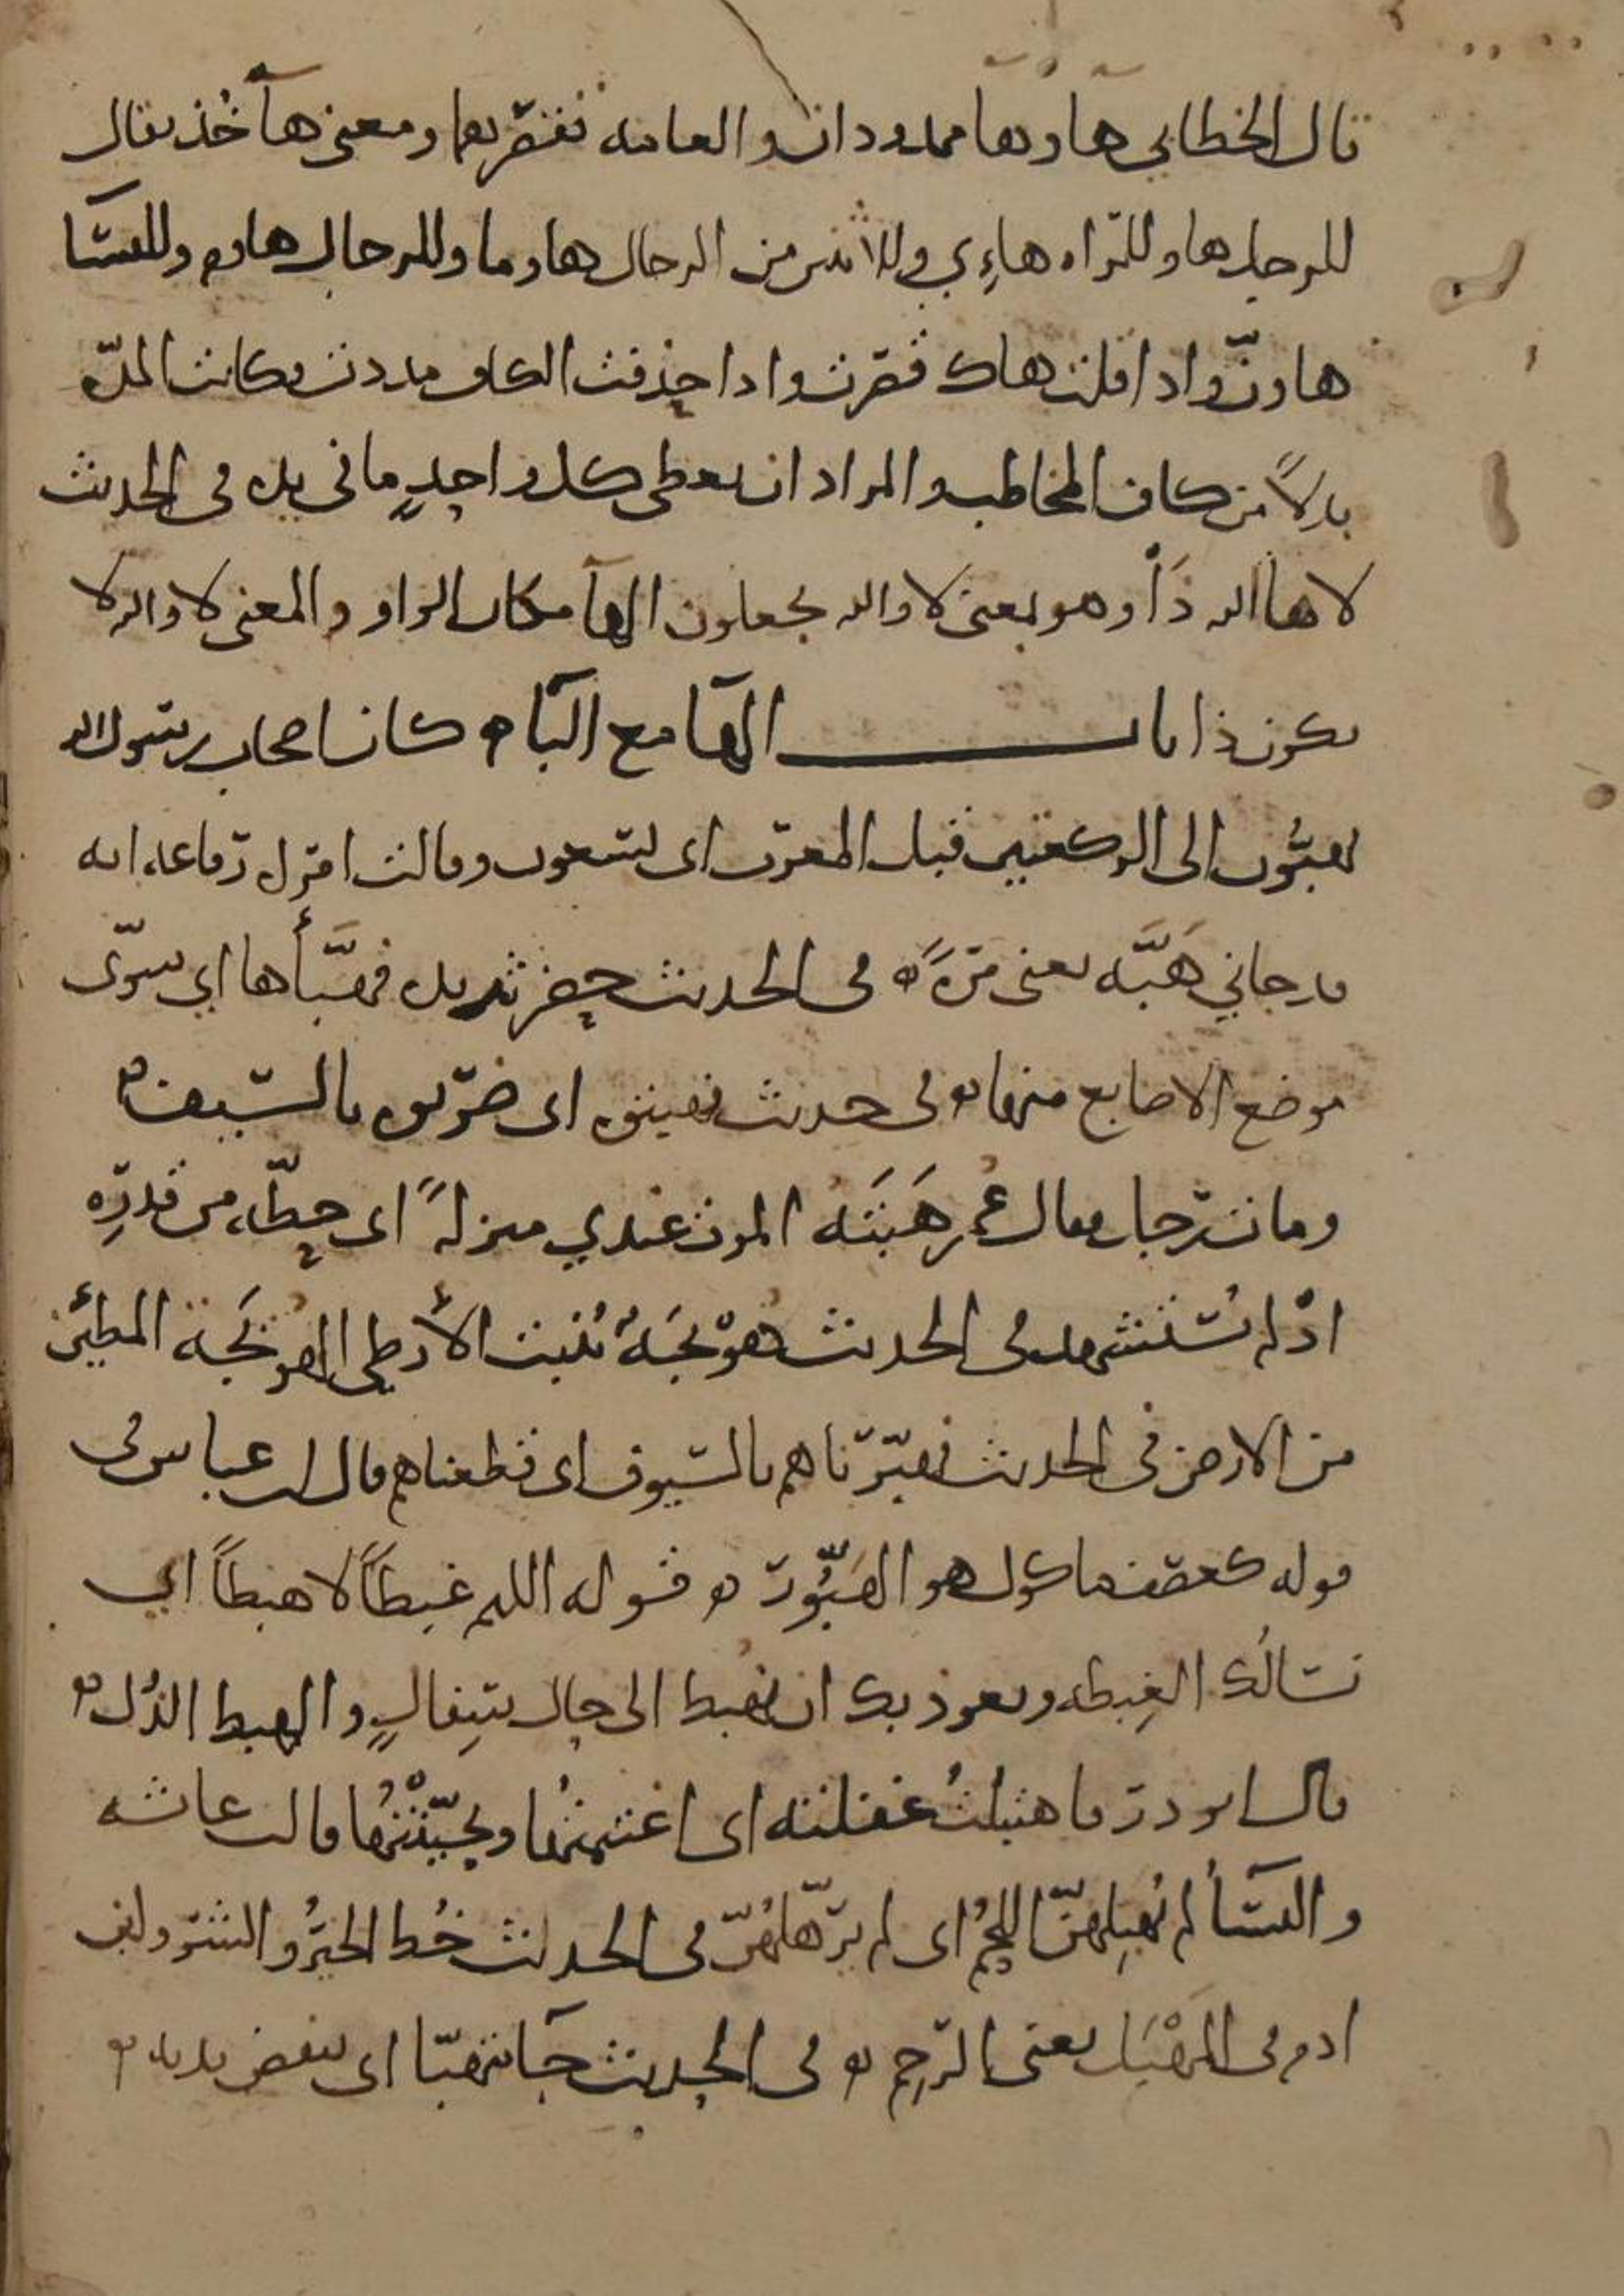 قال الخطابي هآ وهآ ممدودان والعامه تقصرهما ومعنى هآ خُذ يقال
للرجل ها وللمراه هاءِي وللاثنين من الرجال هاوما وللرجال هاوم وللنسآ
هاونّ واذا قلت هاك قصرت واذا حذفت الكاف مددت فكانت المدّه
بدلاً من كاف المخاطب والمراد ان يعطى كل واحدٍ ما في يده فى الحديث
لا ها الله ذَاْ وهو بمعنى لا والله يجعلون الهآ مكان الواو والمعنى لا والله لا
يكون ذا باب الهآ مع البآ ه كان اصحاب رسول الله
يهبُّون الى الركعتين قبل المغرب اى يسعون وقالت امراه رفاعه انه
قد جاني هَبَّه يعنى مرّهً ه فى الحديث حضر ثريده فهبَّأها اي سوّى
موضع الاصابع منها ه فى حديث فهبتوه اى ضربوه بالسيف ه
ومات رجل فقال عمر هَبَتَه الموت عندي منزلهً اى حطّه من قدره
اذ لم يُستشهد فى الحديث هَوْبَجَهٌ تُنبت الأرطى الهوبَجَة المطمئن
من الارض فى الحديث فهبّرناهم بالسيوف اى قطعناهم قال ابن عباس فى
قوله كعصف ماكول هو الهبُّور ه قوله اللهم غبطاً لا هبطاً اى
نسالُك الغِبطه ونعوذ بك ان نهبط الى حال سِفالٍ والهبط الذُل ه
قال ابو ذر فاهتبلتُ غفلته اى اغتنمتُها وتحيّنْتُها قالت عائشه
والنسآ لم يُهبِلهنّ اللحمُ اى لم يرهّلهُنّ فى الحديث خُط الخيرُ والشر ولابن
ادم فى المَهْبَل يعنى الرّحِم ه فى الحديث جآ يتهبّا اى ينفض يديه ه